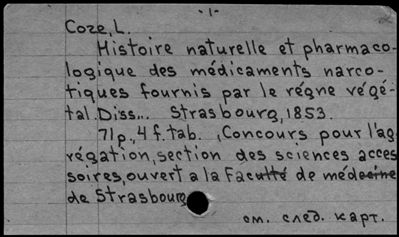 -1-
Coze, L.
Histoire naturelle et pharmaco-
logique des médicaments narco-
tiques fournis par le régne végé-
tal. Diss... Strasbourg, 1853.
71p., 4 f. tab. , Concours pour l'ag
régation, section des sciences acces
soires, ouvert a la Faculté de médecine
de Strasbourg
см. след. карт.